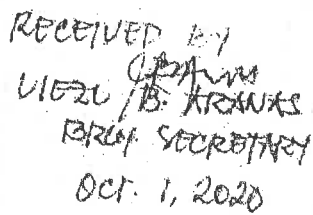 RECEIVED BY
VIEZL B. ARANAS
BRGY. SECRETARY
OCT. 1, 2020